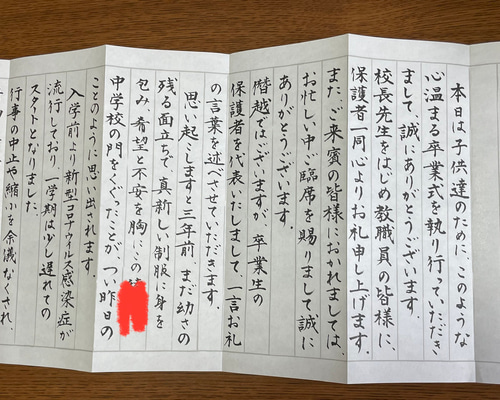 本日は子供達のために、このような
心温まる卒業式を執り行っていただき
まして、誠にありがとうございます。
校長先生をはじめ教職員の皆様に、
保護者一同心よりお礼申し上げます。
また、ご来賓の皆様におかれましては、
お忙しい中ご臨席を賜りまして誠に
ありがとうございます。
僭越ではございますが、卒業生の
保護者を代表いたしまして、一言お礼
の言葉を述べさせていただきます。
思い起こしますと三年前、まだ幼さの
残る面立ちで、真新しい制服に身を
包み、希望と不安を胸にこの
中学校の門をくぐったことが、つい昨日の
ことのように思い出されます。
入学前より新型コロナウィルス感染症が
流行しており、一学期は少し遅れての
スタートとなりました。
行事の中止や縮小を余儀なくされ